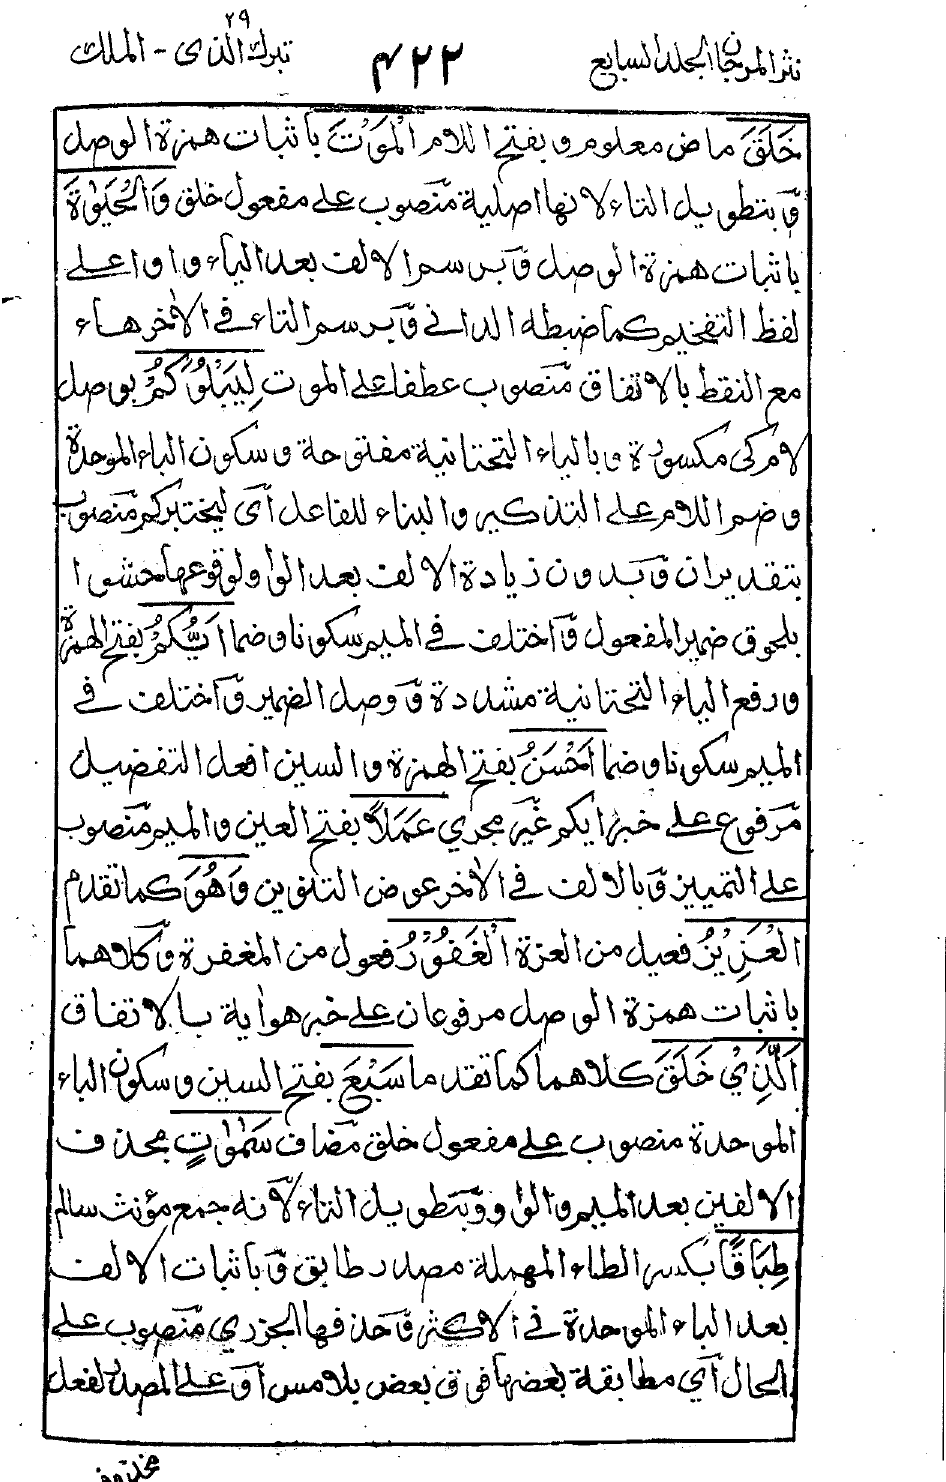 نثر المرجان الجلد السابع
٤٢٢
تبرك الذى ٢٩ - الملك
خَلَقَ ماض معلوم و بفتح اللام الْمَوْتَ باثبات همزة الوصل
وبتطويل التاء لانها اصلية منصوب على مفعول خلق وَالْحَيٰوةَ
باثبات همزة الوصل وبرسم الالف بعد الياء واوا على
لفظ التفخيم كما ضبطه الدانى وبرسم التاء فى الاٰخر هاء
مع النقط بالاتفاق منصوب عطفا على الموت لِيَبْلُوَكُمْ بوصل
لام كى مكسورة وبالياء التحتانية مفتوحة وسكون الباء الموحدة
وضم اللام على التذكير والبناء للفاعل اى ليختبركم منصوب
بتقدير ان وبدون زيادة الالف بعد الواو لوقوعها حشوا
بلحوق ضمير المفعول واختلف فى الميم سكونا وضما اَيُّكُمْ بفتح الهمزة
ورفع الياء التحتانية مشددة ووصل الضمير واختلف فى
الميم سكونا وضما اَحْسَنُ بفتح الهمزة والسين افعل التفضيل
مرفوع على خبر ايكم غير مجرى عَمَلاً بفتح العين والميم منصوب
على التمييز وبالالف فى الاٰخر عوض التنوين وَهُوَ كما تقدم
الْعَزِيْزُ فعيل من العزة الْغَفُوْرُ فعول من المغفرة وكلاهما
باثبات همزة الوصل مرفوعان على خبر هو اٰية بالاتفاق
اَلَّذِيْ خَلَقَ كلاهما كما تقدما سَبْعَ بفتح السين وسكون الباء
الموحدة منصوب على مفعول خلق مضاف سَمٰوٰتٍ بحذف
الالفين بعد الميم والواو وبتطويل التاء لانه جمع مؤنث سالم
طِبَاقًا بكسر الطاء المهملة مصدر طابق وباثبات الالف
بعد الباء الموحدة فى الاكثر وحذفها الجزرى منصوب على
الحال اى مطابقة بعضها فوق بعض بلا مس او على المصدر لفعل